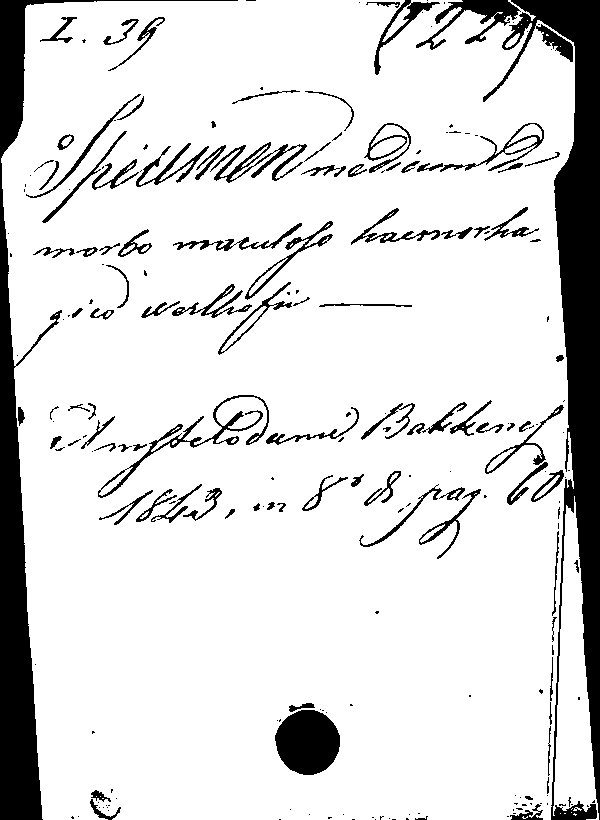 L. 39 (1228)
Specimen medicum de
morbo maculoso haemorha-
gico werlhofii —
Amstelodami, Bakkenes
1843, in 8° di pag. 60